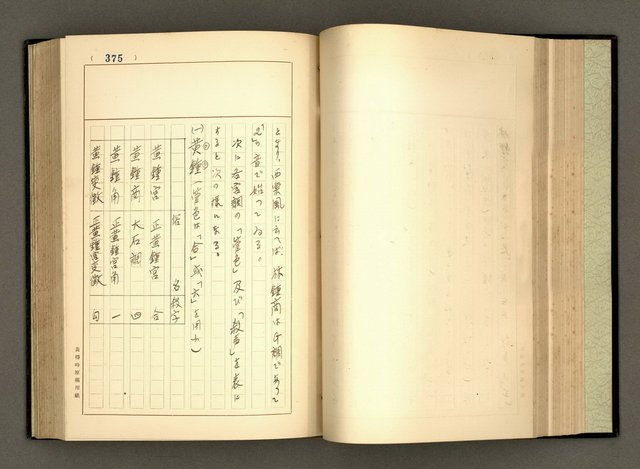 ( 375 )
となり、西楽風に云へば、林鐘商はG調であって
の音で始ってゐる。
次に各宮調の「管色」及び「殺声」を表に
すると次の様になる。
(一)黄鐘(管色は「合」或「六」を用ふ)
俗 名 殺字
黄鐘宮 正黄鐘宮 合
黄鐘商 大石調 四
黄鐘角 正黄鐘宮角 一
黄鐘変徴 正黄鐘宮変徴 勾
黄得時原稿用紙